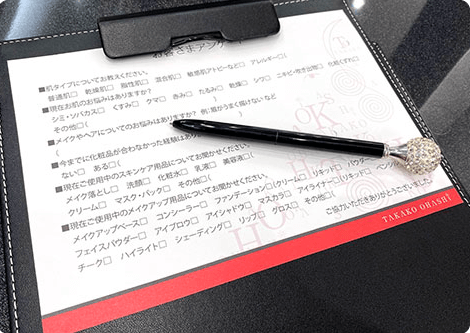 お客さまアンケート
■肌タイプについてお教えください。
普通肌□ 乾燥肌□ 脂性肌□ 混合肌□ 敏感肌アトピーなど□ アレルギー□(
■現在お肌のお悩みはありますか?
シミ・ソバカス□ くすみ□ クマ□ 赤み□ たるみ□ 乾燥□ シワ□ ニキビ・吹き出物□ 化粧くずれ□
その他□(
■メイクやヘアについてのお悩みはありますか? 例:眉がうまく描けない など
■今までに化粧品が合わなかった経験はあり
ない□ ある□(
■現在ご使用中のスキンケア用品についてお聞かせください。
メイク落とし□ 洗顔□ 化粧水□ 乳液□ 美容液□
クリーム□ マスク・パック□ その他□(
■現在ご使用中のメイクアップ用品についてお聞かせください。
メイクアップベース□ コンシーラー□ ファンデーション□(クリーム□ リキッド□ パウダー
フェイスパウダー□ アイブロウ□ アイシャドウ□ マスカラ□ アイライナー□(リキッド□ ペンシル
チーク□ ハイライト□ シェーディング□ リップ□ グロス□ その他□(
ご協力いただきありがとうございました。
TAKAKO OHASHI